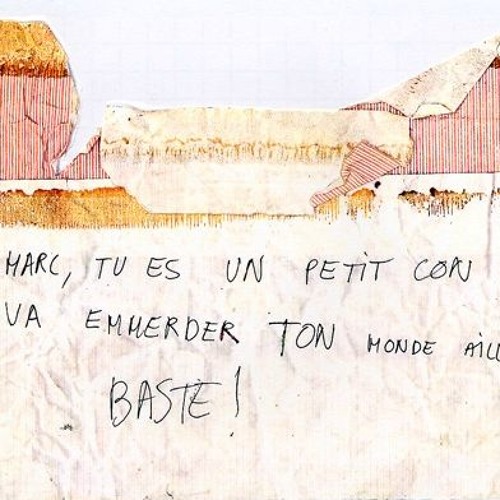 MARC, TU ES UN PETIT CON
VA EMMERDER TON MONDE AILL
BASTE!